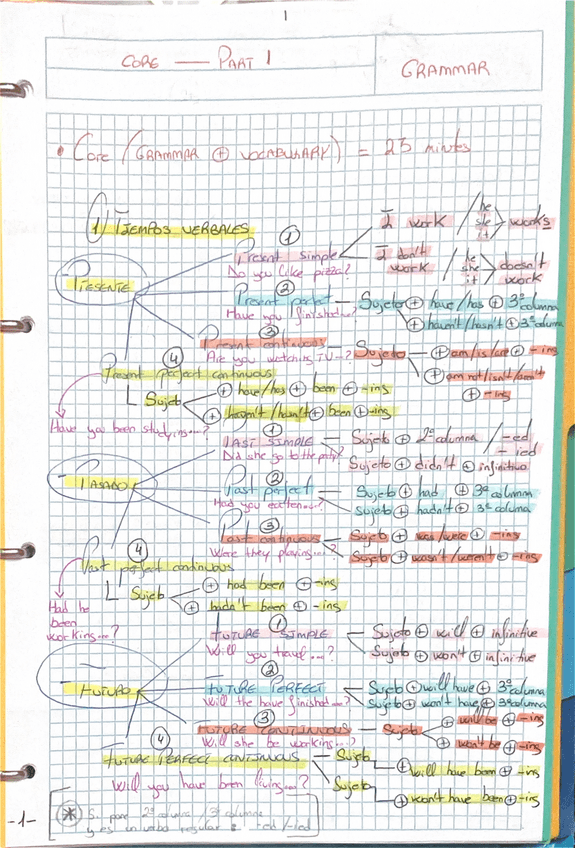 1
CORE — PART 1
GRAMMAR
• Core (GRAMMAR + VOCABULARY) = 25 minutes
1) TIEMPOS VERBALES
- PRESENTE
① Present simple
Do you like pizza?
I work / he she it > works
I don't work / he she it > doesn't work
② Present perfect — Sujeto + have/has + 3ª columna
+ haven't/hasn't + 3ª columna
Have you finished...?
③ Present continuous — Sujeto + am/is/are + -ing
+ am not/isn't/aren't + -ing
Are you watching TV...?
④ Present perfect continuous
Sujeto + have/has + been + -ing
+ haven't/hasn't + been + -ing
Have you been studying...?
- PASADO
① PAST SIMPLE — Sujeto + 2ª columna / -ed -ied
Sujeto + didn't + infinitivo
Did she go to the party?
② Past perfect — Sujeto + had + 3ª columna
sujeto + hadn't + 3ª columna
Had you eaten...?
③ Past continuous — Sujeto + was/were + -ing
Sujeto + wasn't/weren't + -ing
Were they playing...?
④ Past perfect continuous
Sujeto + had been + -ing
+ hadn't been + -ing
Had he been working...?
- FUTURO
① FUTURE SIMPLE — Sujeto + will + infinitive
Sujeto + won't + infinitive
Will you travel...?
② FUTURE PERFECT — Sujeto + will have + 3ª columna
Sujeto + won't have + 3ª columna
Will the have finished...?
③ FUTURE CONTINUOUS — Sujeto + will be + -ing
+ won't be + -ing
Will she be working...?
④ FUTURE PERFECT CONTINUOUS — Sujeto + will have been + -ing
Sujeto + won't have been + -ing
Will you have been living...?
-1-
* Si pone 2ª columna / 3ª columna
y es un verbo regular = -ed/-ied